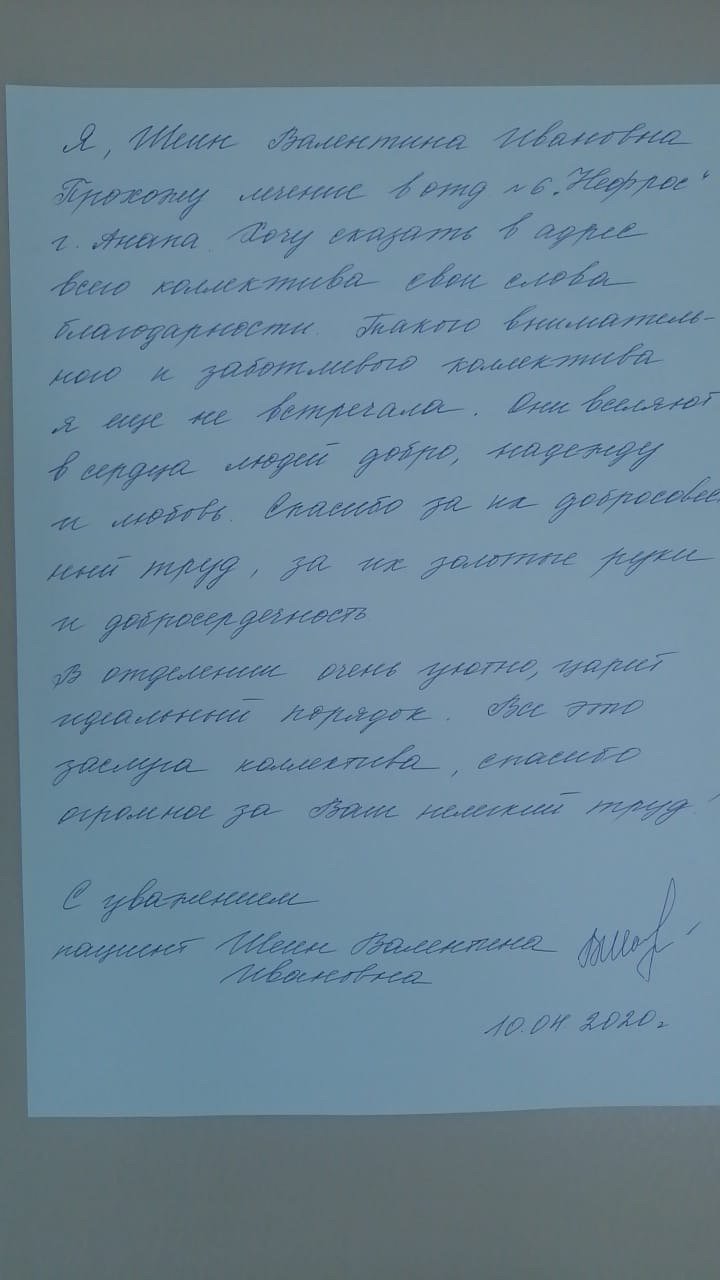 Я, Шеин Валентина Ивановна
Прохожу лечение в отд №6 „Нефрос"
г. Анапа. Хочу сказать в адрес
всего коллектива свои слова
благодарности. Такого вниматель-
ного и заботливого коллектива
я еще не встречала. Они вселяют
в сердца людей добро, надежду
и любовь. Спасибо за их добросовес
ный труд, за их золотые руки
и добросердечность
В отделении очень уютно, царит
идеальный порядок. Все это
заслуга коллектива, спасибо
огромное за Ваш нелегкий труд!
С уважением
пациент Шеин Валентина
Ивановна
10.04.2020г